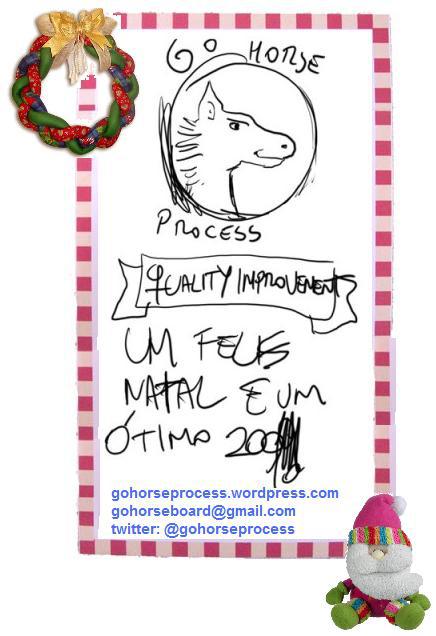 GO HORSE
PROCESS
QUALITY IMPROVEMENT
UM FELIS
NATAL E UM
ÓTIMO 200
gohorseprocess.wordpress.com
gohorseboard@gmail.com
twitter: @gohorseprocess